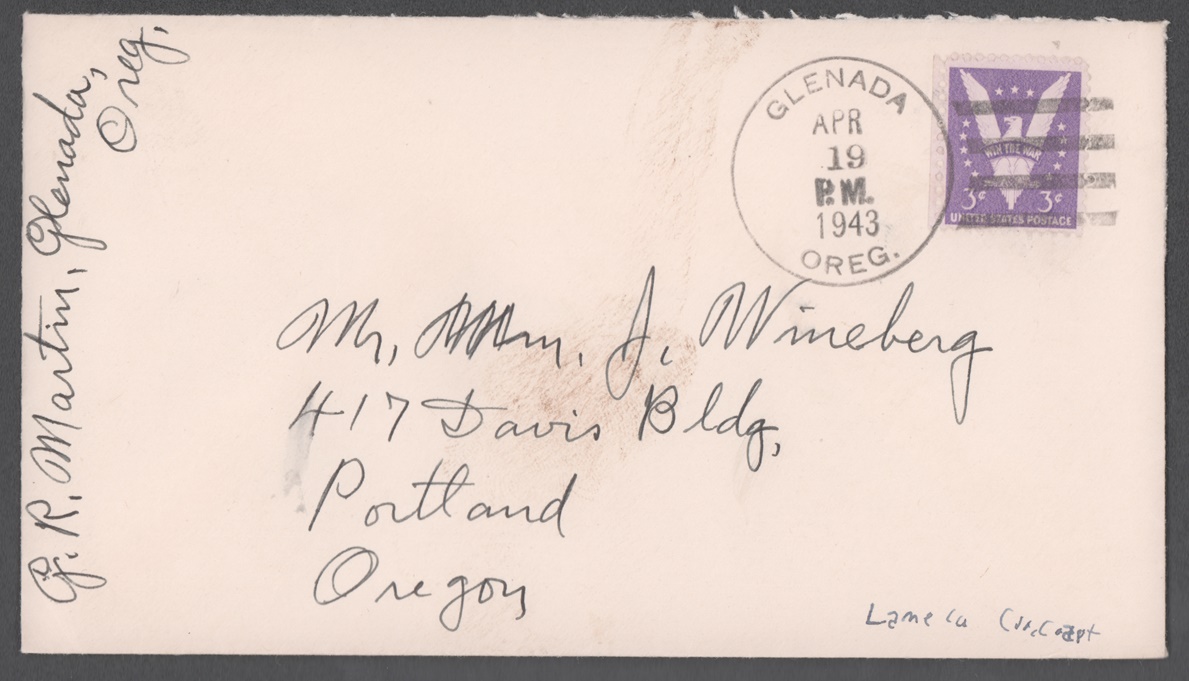 G. R. Martin, Glenada,
Oreg.
GLENADA
APR
19
P.M.
1943
OREG.
WIN THE WAR
3¢ 3¢
UNITED STATES POSTAGE
Mr. Wm. J. Wineberg
417 Davis Bldg,
Portland
Oregon
Lane Co